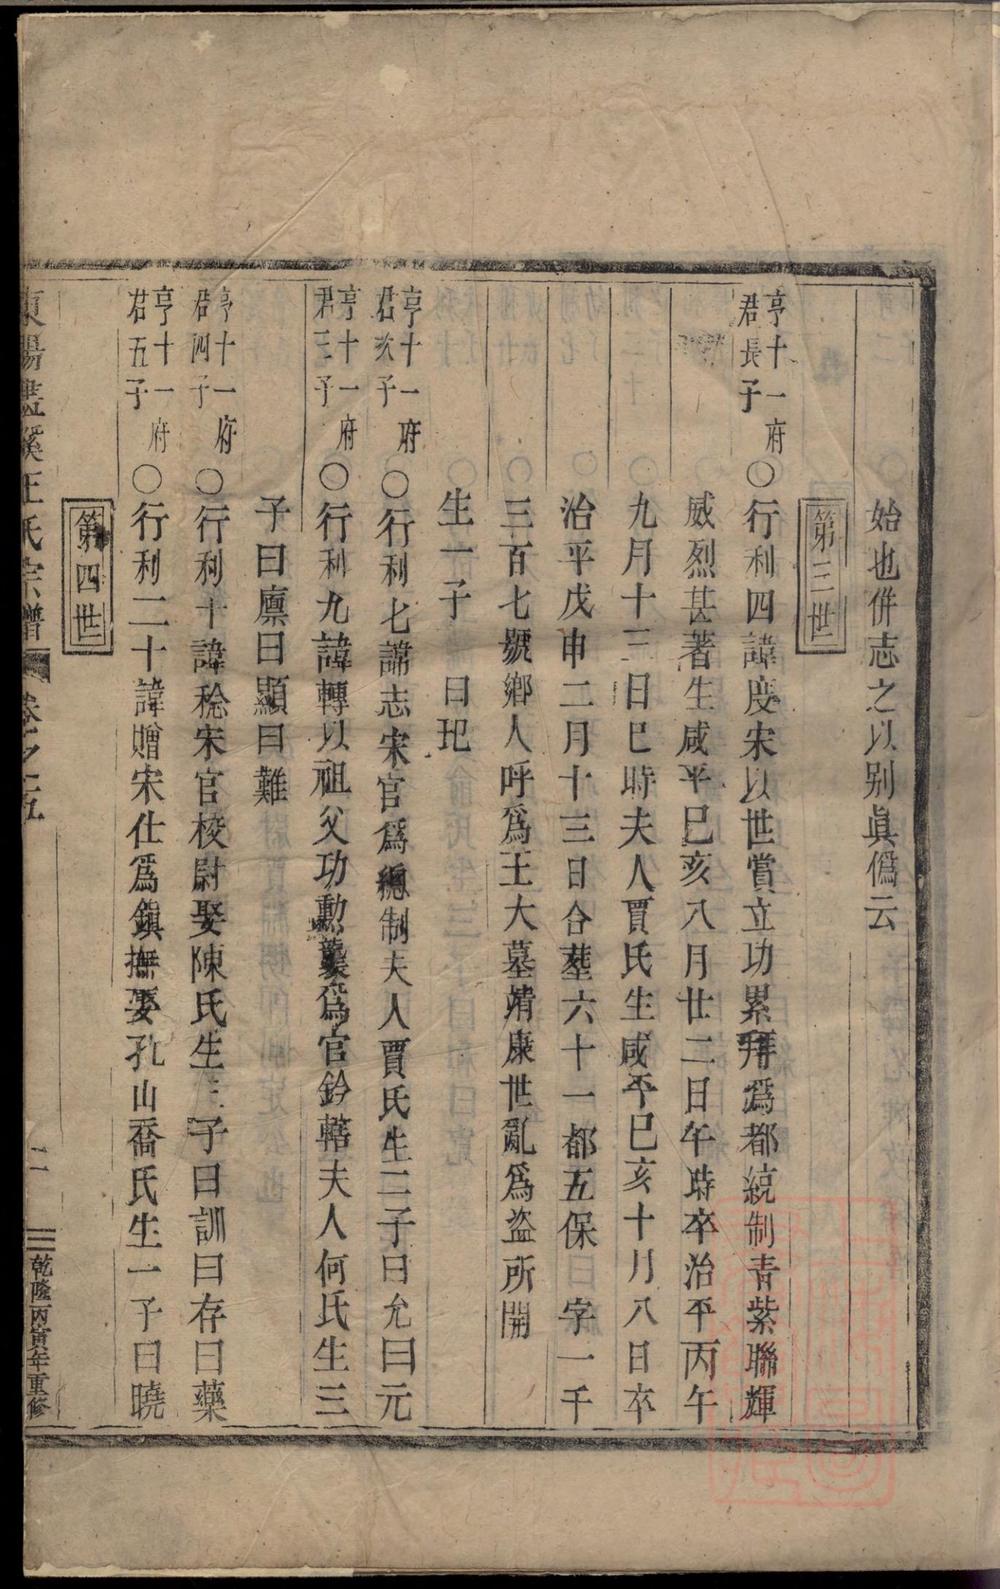 始也併志之以别眞僞云
第三世
亨十一府
君長子
○行利四諱度宋以世賞立功累拜爲都統制青紫聯輝
威烈甚著生咸平己亥八月廿二日午時卒治平丙午
九月十三日巳時夫人賈氏生咸平己亥十月八日卒
治平戊申二月十三日合塟六十一都五保 字一千
三百七號鄉人呼爲王大墓靖康世亂爲盗所開
生一子 曰玘
亨十一府
君次子
○行利七諱志宋官爲總制夫人賈氏生二子曰允曰元
亨十一府
君三子
○行利九諱轉以祖父功勲襲爲官鈐轄夫人何氏生三
子曰廪曰顯曰難
亨十一府
君四子
○行利十諱稔宋官校尉娶陳氏生三子曰訓曰存曰藥
亨十一府
君五子
○行利二十諱贈宋仕爲鎮撫娶孔山喬氏生一子曰曉
第四世
東陽畫溪王氏宗譜 卷之五 二 乾隆丙寅年重修